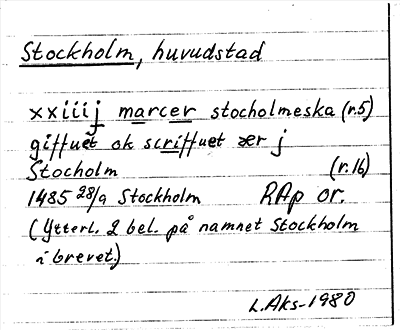 Stockholm, huvudstad
xxiiij marcer stocholmeska (r.5)
giffuet ok scriffuet ær j
Stocholm (r.16)
1485 28/9 Stockholm RAp or.
(Ytterl. 2 bel. på namnet Stockholm
i brevet.)
L.Aks-1980